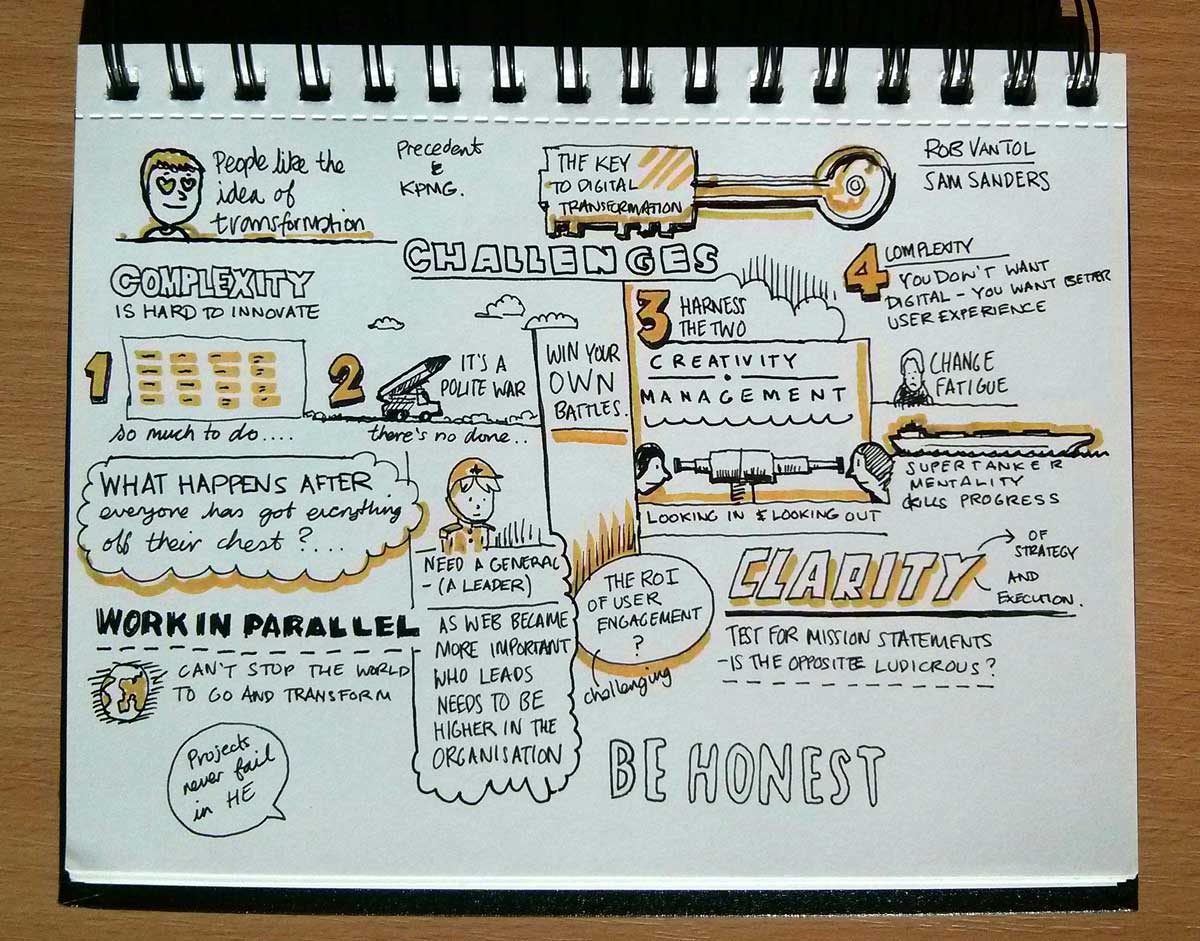 People like the
idea of
transformation
Precedent
&
KPMG.
THE KEY
TO DIGITAL
TRANSFORMATION
ROB VAN TOL
SAM SANDERS
CHALLENGES
COMPLEXITY
IS HARD TO INNOVATE
1
so much to do....
2
IT'S A
POLITE WAR
there's no done..
WIN YOUR
OWN
BATTLES.
3
HARNESS
THE TWO
CREATIVITY
MANAGEMENT
LOOKING IN & LOOKING OUT
4
COMPLEXITY
YOU DON'T WANT
DIGITAL - YOU WANT BETTER
USER EXPERIENCE
CHANGE
FATIGUE
SUPERTANKER
MENTALITY
KILLS PROGRESS
WHAT HAPPENS AFTER
everyone has got everything
off their chest?....
NEED A GENERAL
- (A LEADER)
AS WEB BECAME
MORE IMPORTANT
WHO LEADS
NEEDS TO BE
HIGHER IN THE
ORGANISATION
THE ROI
OF USER
ENGAGEMENT
?
challenging
CLARITY
OF
STRATEGY
AND
EXECUTION.
TEST FOR MISSION STATEMENTS
- IS THE OPPOSITE LUDICROUS?
WORK IN PARALLEL
CAN'T STOP THE WORLD
TO GO AND TRANSFORM
Projects
never fail
in HE
BE HONEST